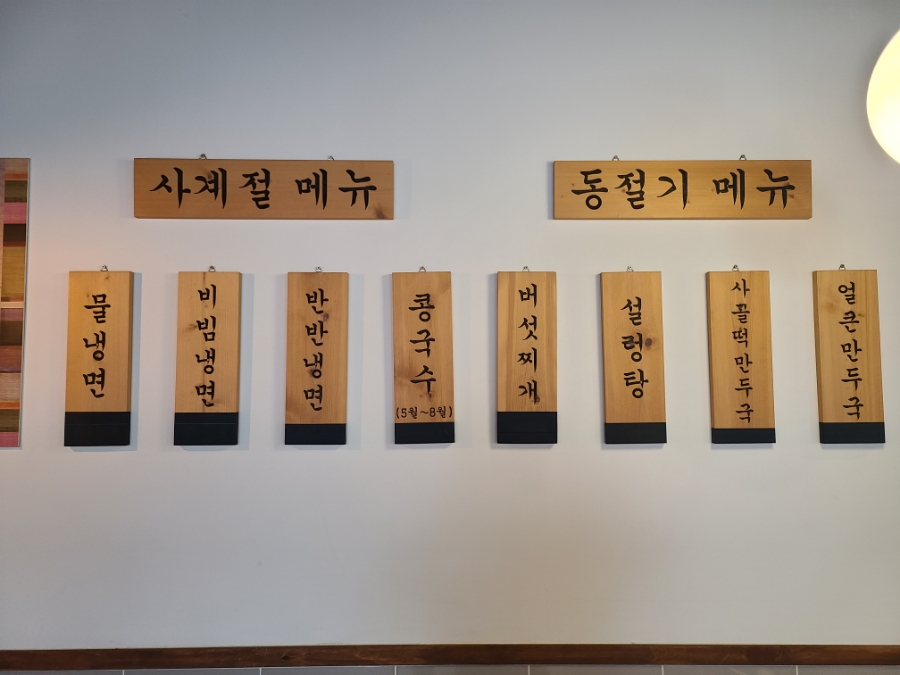 사계절 메뉴
동절기 메뉴
물냉면
비빔냉면
반반냉면
콩국수
(5월~8월)
버섯찌개
설렁탕
사골떡만두국
얼큰만두국